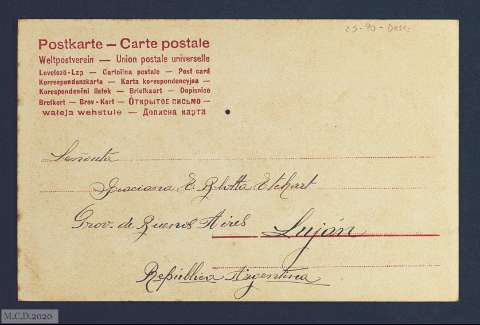 Postkarte — Carte postale
Weltpostverein — Union postale universelle
Levelező-Lap — Cartolina postale — Post card
Korrespondenzkarte — Karta korespondencyjna —
Korespondenční lístek — Briefkaart — Dopisnice
Brefkort — Brev-Kort — Открытое письмо —
waleja wehstule — Дописна карта
Señorita
Graciana E. Blotta Etchart
Prov. de Buenos Aires
Luján
República Argentina
M.C.D.2020